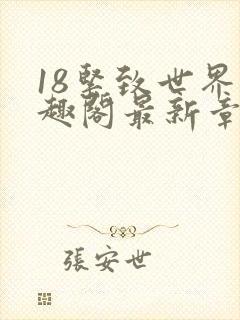 18堅致世界
趣閣最新章
張安世